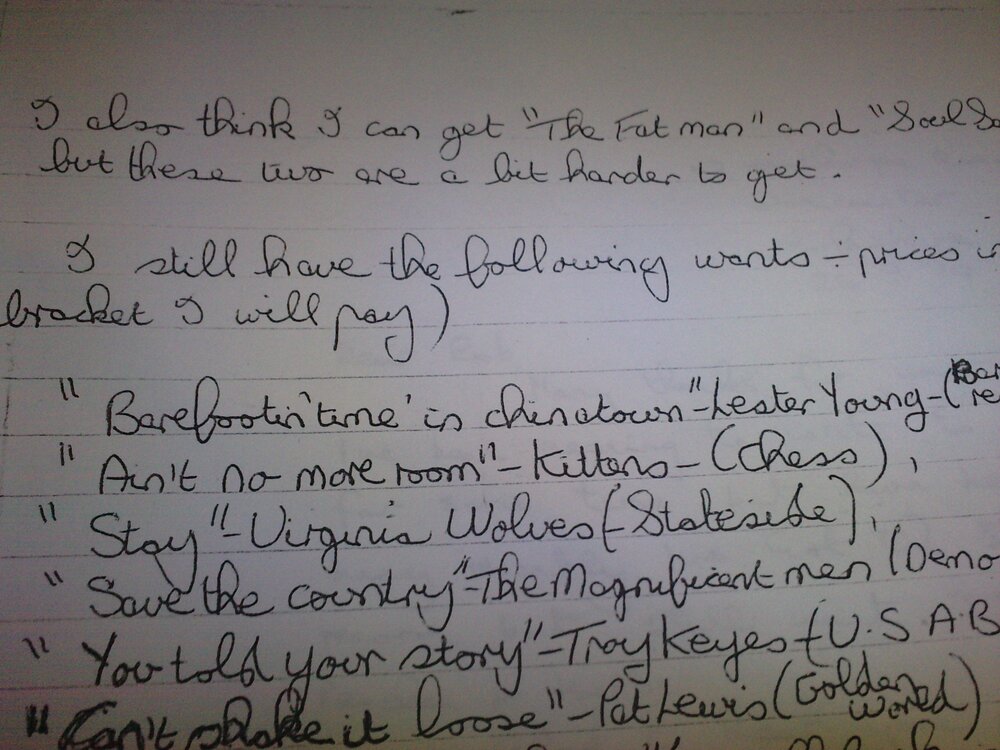 I also think I can get "The Fat man" and "Soul
but these two are a bit harder to get.
I still have the following wants ÷ prices
bracket I will pay)
"Barefootin' time' in chinatown" - Lester Young - (
"Ain't no more room" - Kittens - (Chess),
"Stay" - Virginia Wolves (- Stateside),
"Save the country" - The Magnificent men (Demo
"You told your story" - Troy Keyes (U.S A.B
"Can't shake it loose" - Pat Lewis (Golden World)